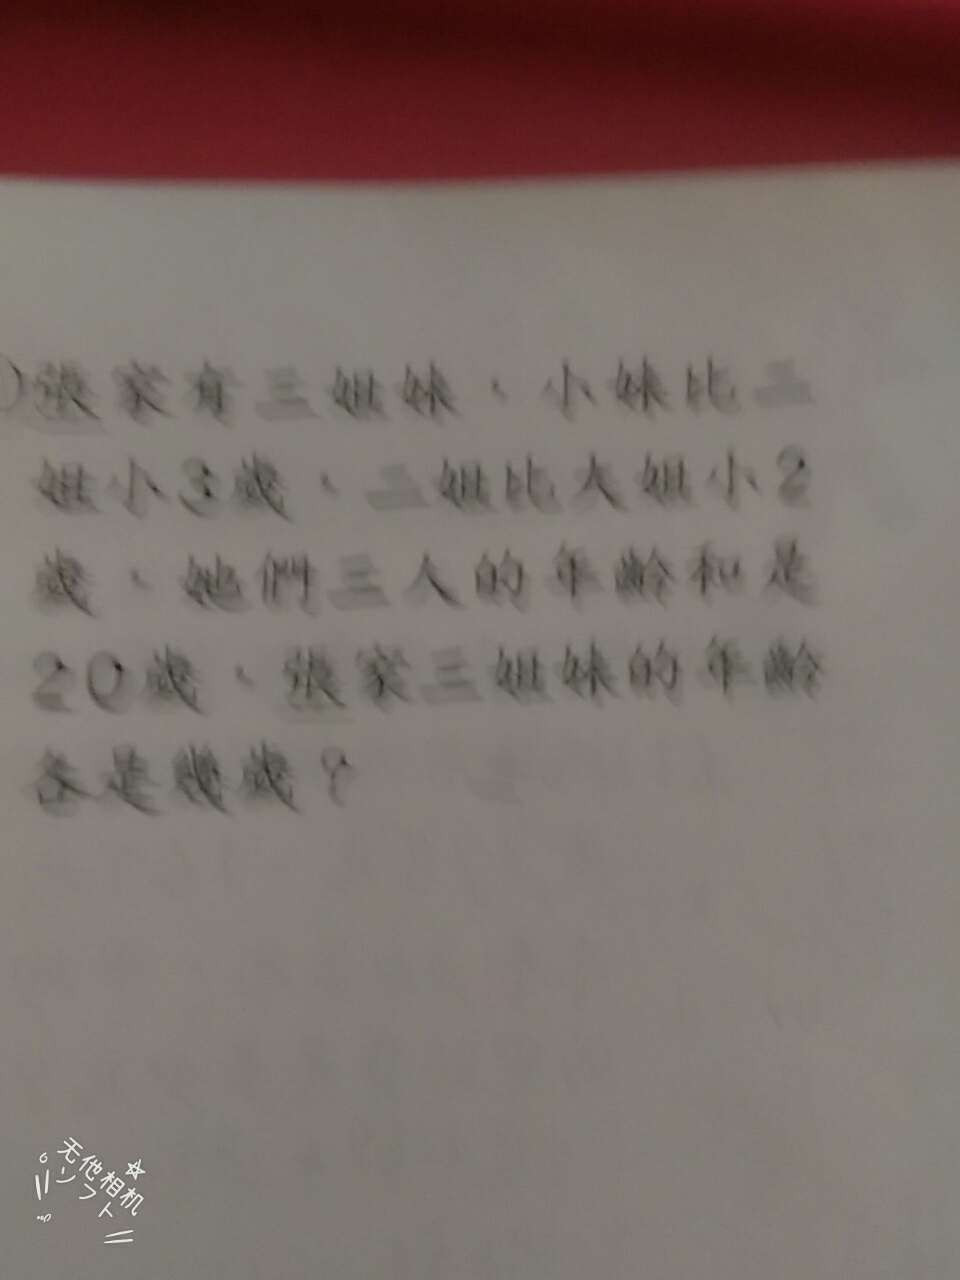 )張家有三姐妹，小妹比二
姐小3歲，二姐比大姐小2
歲，她們三人的年齡和是
20歲，張家三姐妹的年齡
各是幾歲？
无他相机
ソフト